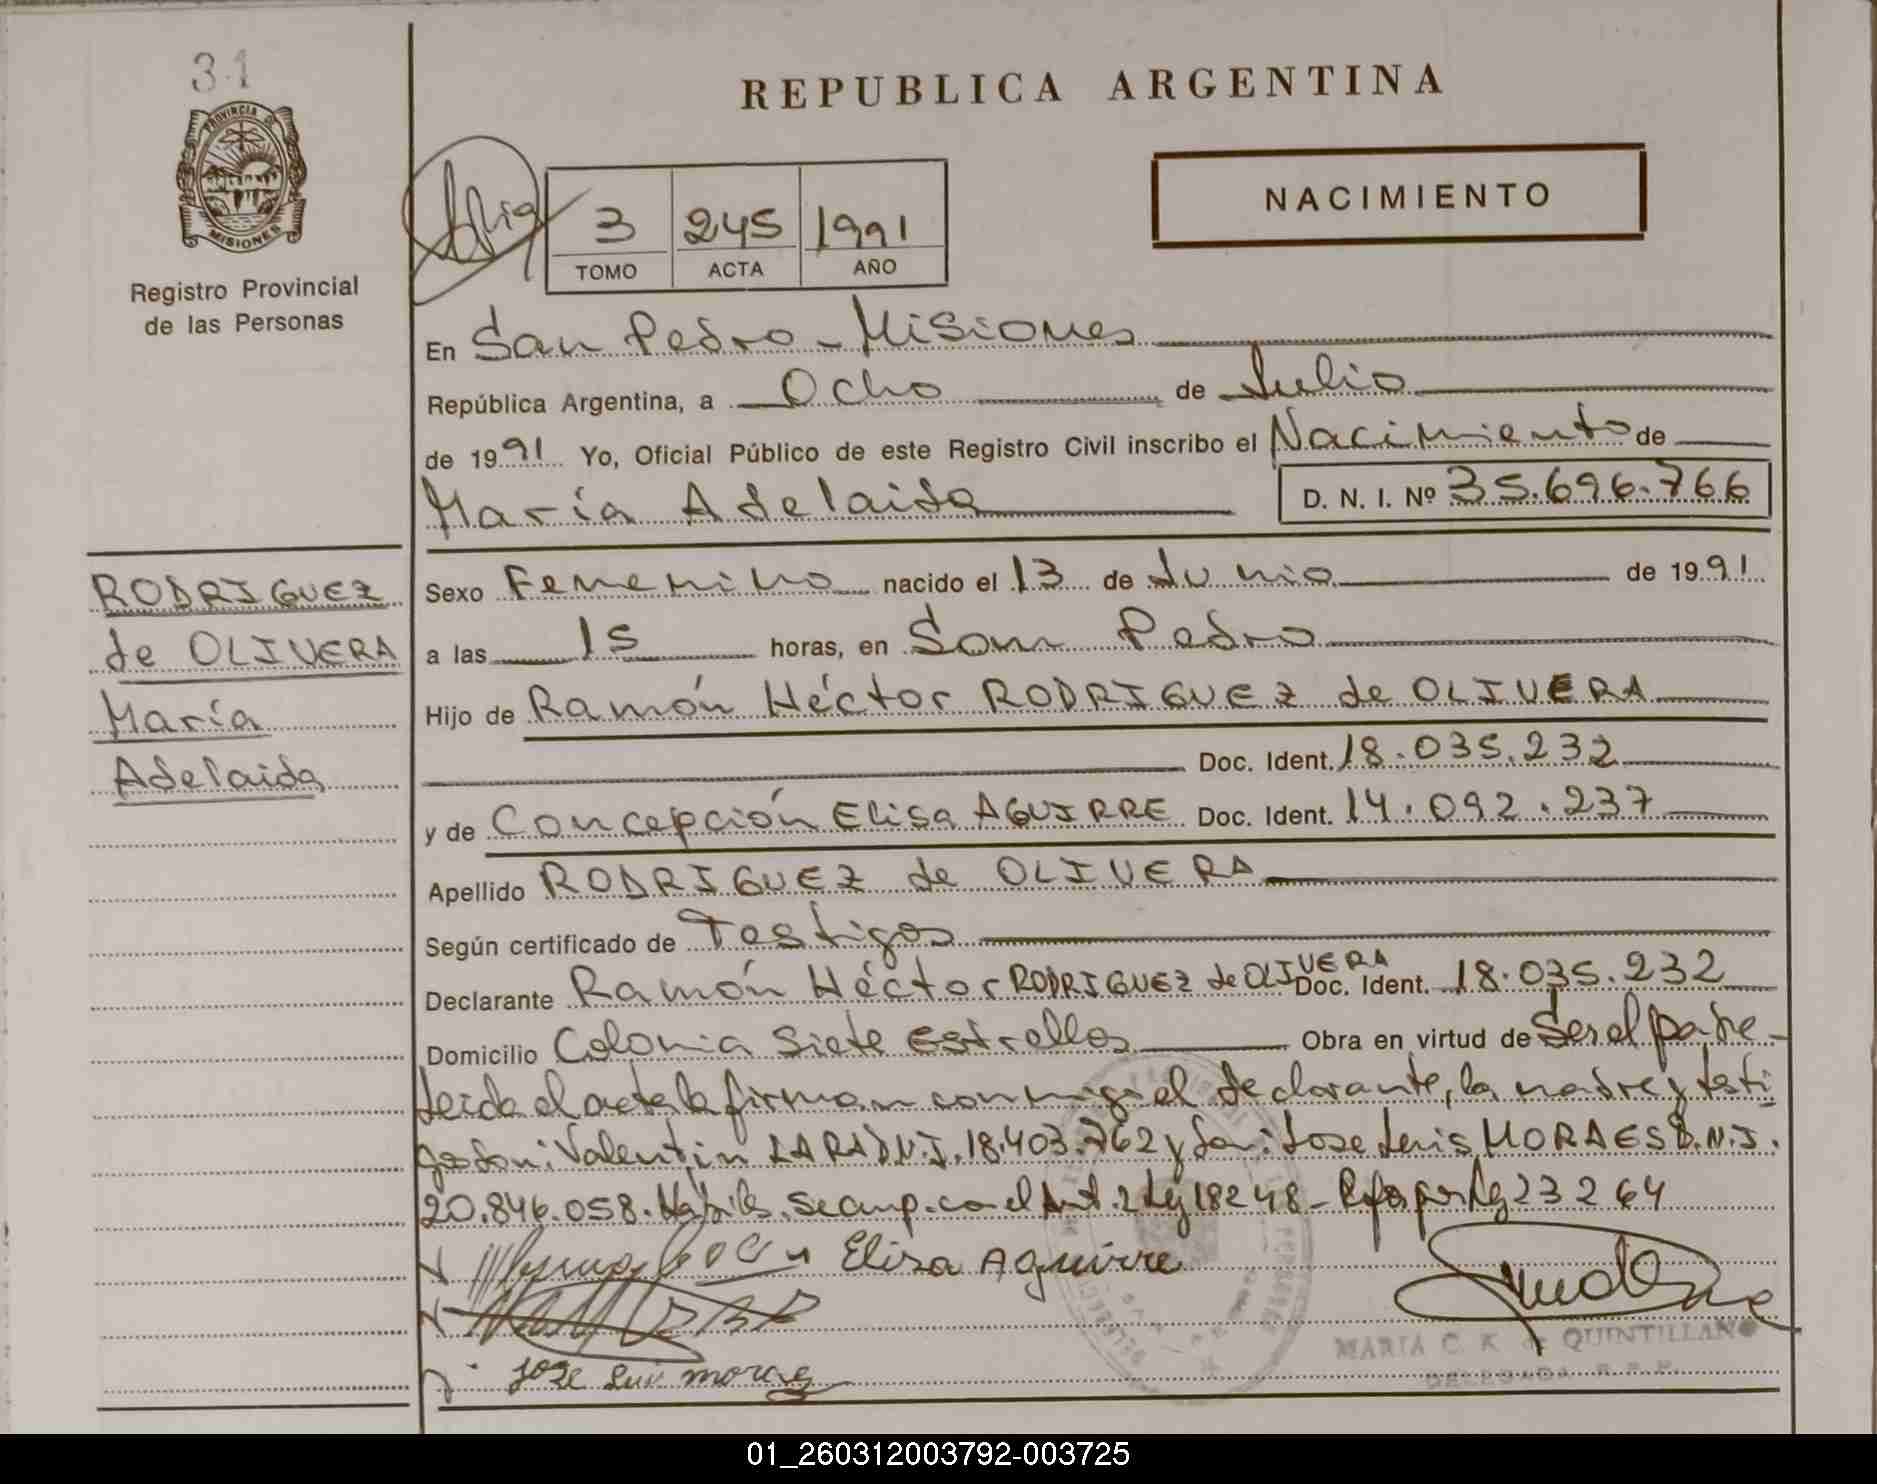 31
PROVINCIA DE
MISIONES
Registro Provincial
de las Personas
REPUBLICA ARGENTINA
NACIMIENTO
3 245 1991
TOMO ACTA AÑO
En San Pedro - Misiones
República Argentina, a Ocho de Julio
de 1991 Yo, Oficial Público de este Registro Civil inscribo el Nacimiento de
María Adelaida D. N. I. Nº 35.696.766
RODRIGUEZ
de OLIVERA
María
Adelaida
Sexo Femenino nacido el 13 de Junio de 1991.
a las 15 horas, en San Pedro
Hijo de Ramón Héctor RODRIGUEZ de OLIVERA
Doc. Ident. 18.035.232
y de Concepción Elisa AGUIRRE Doc. Ident. 14.092.237
Apellido RODRIGUEZ de OLIVERA
Según certificado de Testigos
Declarante Ramón Héctor RODRIGUEZ de OLIVERA Doc. Ident. 18.035.232
Domicilio Colonia Siete Estrellas Obra en virtud de Ser el padre-
Leida el acta la firman conmigo el declarante, la madre y testi
gos don: Valentin LARA D.N.I. 18.403.762 y don: Jose Luis MORAES D.N.I.
20.846.058. Hábiles. Se cump. con el Art. 2 Ley 18248 - Ref. por Ley 23264
Elisa Aguirre
Jose Luis moraes
MARIA C. K. de QUINTILLANO
DELEGADA R.P.P.
01_260312003792-003725